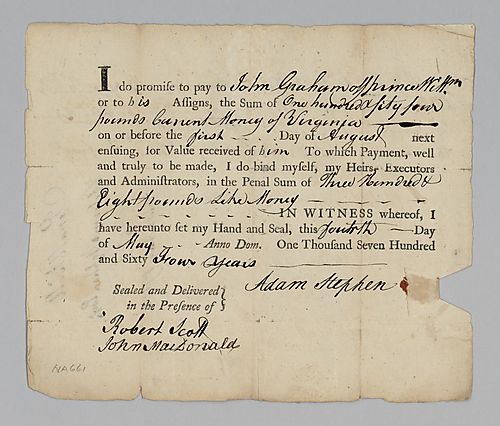 I do promise to pay to John Graham of prince Wᵐ
or to his Assigns, the Sum of One hundred & fifty four
pounds Current Money of Virginia
on or before the first Day of August next
ensuing, for Value received of him To which Payment, well
and truly to be made, I do bind myself, my Heirs, Executors
and Administrators, in the Penal Sum of Three Hundred &
Eight pounds Like Money
IN WITNESS whereof, I
have hereunto set my Hand and Seal, this fourth Day
of May Anno Dom. One Thousand Seven Hundred
and Sixty Four Years
Adam Stephen
Sealed and Delivered
in the Presence of
Robert Scott
John MacDonald
NA661